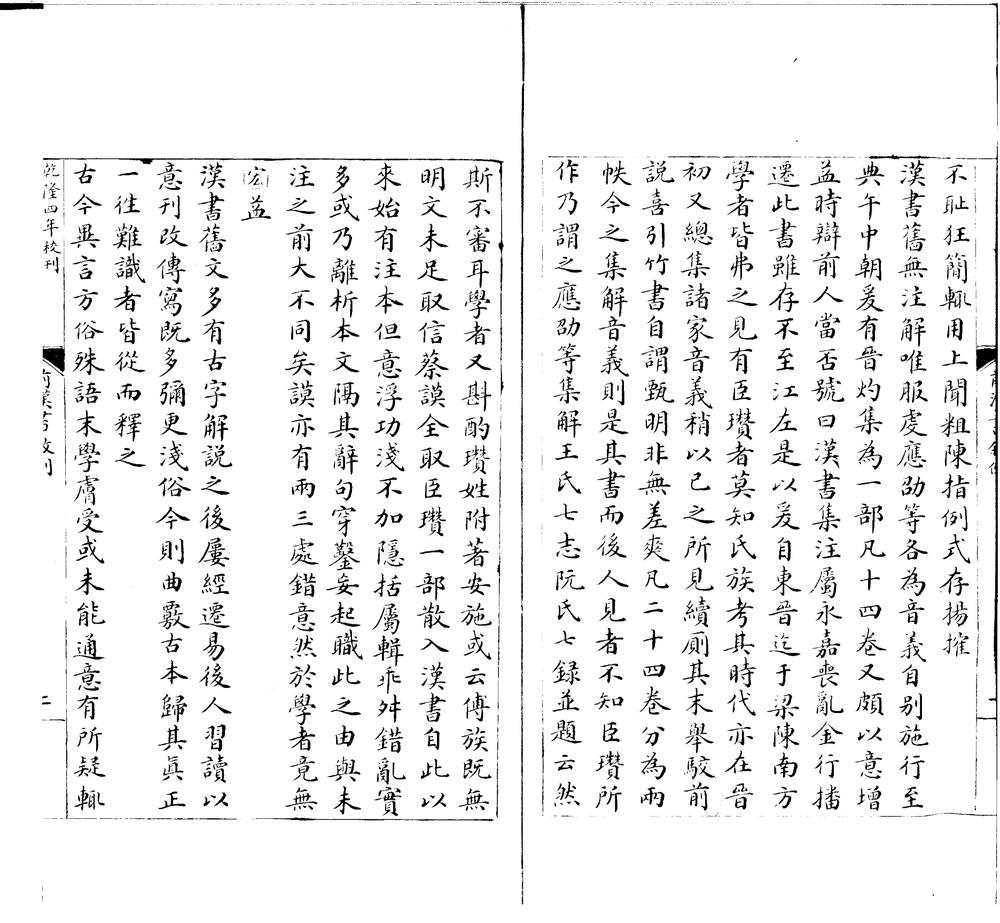 不恥狂簡輒用上聞粗陳指例式存揚搉
漢書舊無注解唯服虔應劭等各為音義自别施行至
典午中朝爰有晉灼集為一部凡十四卷又頗以意增
益時辯前人當否號曰漢書集注屬永嘉喪亂金行播
遷此書雖存不至江左是以爰自東晉迄于梁陳南方
學者皆弗之見有臣瓚者莫知氏族考其時代亦在晉
初又總集諸家音義稍以己之所見續廁其末舉駮前
説喜引竹書自謂甄明非無差爽凡二十四卷分為兩
帙今之集解音義則是其書而後人見者不知臣瓚所
作乃謂之應劭等集解王氏七志阮氏七録並題云然
斯不審耳學者又斟酌瓚姓附著安施或云傅族既無
明文未足取信蔡謨全取臣瓚一部散入漢書自此以
來始有注本但意浮功淺不加隱括屬輯乖舛錯亂實
多或乃離析本文隔其辭句穿鑿妄起職此之由與未
注之前大不同矣謨亦有兩三處錯意然於學者竟無
宏益
漢書舊文多有古字解説之後屢經遷易後人習讀以
意刊改傳寫既多彌更淺俗今則曲覈古本歸其眞正
一往難識者皆從而釋之
古今異言方俗殊語末學膚受或未能通意有所疑輒
乾隆四年校刊
前漢書敘例
二